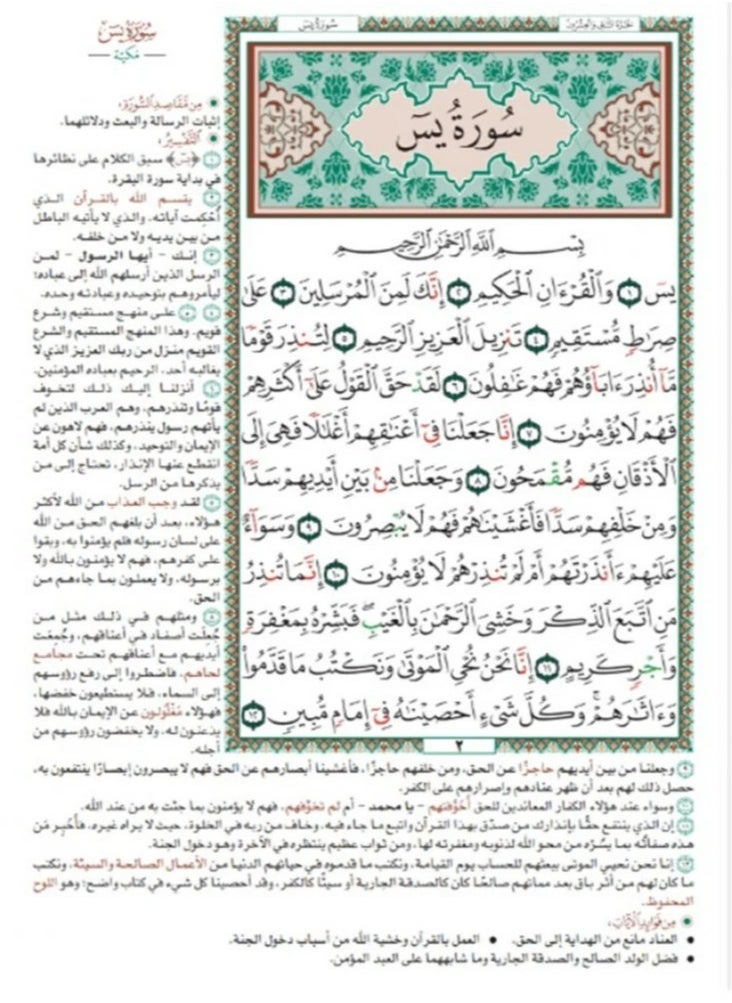 الجزء الثاني والعشرين
سورة يس
سُورَةُ يسٓ
بِسْمِ ٱللَّهِ ٱلرَّحْمَٰنِ ٱلرَّحِيمِ
يسٓ ١ وَٱلْقُرْءَانِ ٱلْحَكِيمِ ٢ إِنَّكَ لَمِنَ ٱلْمُرْسَلِينَ ٣ عَلَىٰ
صِرَٰطٍ مُّسْتَقِيمٍ ٤ تَنزِيلَ ٱلْعَزِيزِ ٱلرَّحِيمِ ٥ لِتُنذِرَ قَوْمًا
مَّآ أُنذِرَ ءَابَآؤُهُمْ فَهُمْ غَٰفِلُونَ ٦ لَقَدْ حَقَّ ٱلْقَوْلُ عَلَىٰٓ أَكْثَرِهِمْ
فَهُمْ لَا يُؤْمِنُونَ ٧ إِنَّا جَعَلْنَا فِىٓ أَعْنَٰقِهِمْ أَغْلَٰلًا فَهِىَ إِلَى
ٱلْأَذْقَانِ فَهُم مُّقْمَحُونَ ٨ وَجَعَلْنَا مِنۢ بَيْنِ أَيْدِيهِمْ سَدًّا
وَمِنْ خَلْفِهِمْ سَدًّا فَأَغْشَيْنَٰهُمْ فَهُمْ لَا يُبْصِرُونَ ٩ وَسَوَآءٌ
عَلَيْهِمْ ءَأَنذَرْتَهُمْ أَمْ لَمْ تُنذِرْهُمْ لَا يُؤْمِنُونَ ١٠ إِنَّمَا تُنذِرُ
مَنِ ٱتَّبَعَ ٱلذِّكْرَ وَخَشِىَ ٱلرَّحْمَٰنَ بِٱلْغَيْبِ ۖ فَبَشِّرْهُ بِمَغْفِرَةٍ
وَأَجْرٍ كَرِيمٍ ١١ إِنَّا نَحْنُ نُحْىِ ٱلْمَوْتَىٰ وَنَكْتُبُ مَا قَدَّمُوا۟
وَءَاثَٰرَهُمْ ۚ وَكُلَّ شَىْءٍ أَحْصَيْنَٰهُ فِىٓ إِمَامٍ مُّبِينٍ ١٢
٢
سورة يس
مكية
من مقاصد السورة:
إثبات الرسالة والبعث ودلائلهما.
التفسير:
١ ﴿يس﴾ سبق الكلام على نظائرها
في بداية سورة البقرة.
٢ يقسم الله بالقرآن الذي
أُحكمت آياته، والذي لا يأتيه الباطل
من بين يديه ولا من خلفه.
٣ إنك - أيها الرسول - لمن
الرسل الذين أرسلهم الله إلى عباده؛
ليأمروهم بتوحيده وعبادته وحده.
٤ ٥ على منهج مستقيم وشرع
قويم. وهذا المنهج المستقيم والشرع
القويم منزل من ربك العزيز الذي لا
يغالبه أحد، الرحيم بعباده المؤمنين.
٦ أنزلنا إليك ذلك لتخوف
قومًا وتنذرهم، وهم العرب الذين لم
يأتهم رسول ينذرهم، فهم لاهون عن
الإيمان والتوحيد، وكذلك شأن كل أمة
انقطع عنها الإنذار، تحتاج إلى من
يذكرها من الرسل.
٧ لقد وجب العذاب من الله لأكثر
هؤلاء، بعد أن بلغهم الحق من الله
على لسان رسوله فلم يؤمنوا به، وبقوا
على كفرهم، فهم لا يؤمنون بالله ولا
برسوله، ولا يعملون بما جاءهم من
الحق.
٨ ومثلهم في ذلك مثل من
جُعِلت أصفاد في أعناقهم، وجُمِعت
أيديهم مع أعناقهم تحت مجامع
لحاهم، فاضطروا إلى رفع رؤوسهم
إلى السماء، فلا يستطيعون خفضها،
فهؤلاء مغلولون عن الإيمان بالله فلا
يذعنون له، ولا يخفضون رؤوسهم من
أجله.
٩ وجعلنا من بين أيديهم حاجزًا عن الحق، ومن خلفهم حاجزًا، فأغشينا أبصارهم عن الحق فهم لا يبصرون إبصارًا ينتفعون به،
حصل ذلك لهم بعد أن ظهر عنادهم وإصرارهم على الكفر.
١٠ وسواء عند هؤلاء الكفار المعاندين للحق أخَوَّفتهم - يا محمد - أم لم تخوِّفهم، فهم لا يؤمنون بما جئت به من عند الله.
١١ إن الذي ينتفع حقًّا بإنذارك من صدّق بهذا القرآن واتبع ما جاء فيه، وخاف من ربه في الخلوة، حيث لا يراه غيره، فأخبِر مَن
هذه صفاته بما يسُرّه من محو الله لذنوبه ومغفرته لها، ومن ثواب عظيم ينتظره في الآخرة وهو دخول الجنة.
١٢ إنا نحن نحيي الموتى ببعثهم للحساب يوم القيامة، ونكتب ما قدموه في حياتهم الدنيا من الأعمال الصالحة والسيئة، ونكتب
ما كان لهم من أثر باق بعد مماتهم صالحًا كان كالصدقة الجارية أو سيئًا كالكفر، وقد أحصينا كل شيء في كتاب واضح؛ وهو اللوح
المحفوظ.
من فوائد الآيات:
• العناد مانع من الهداية إلى الحق. • العمل بالقرآن وخشية الله من أسباب دخول الجنة.
• فضل الولد الصالح والصدقة الجارية وما شابههما على العبد المؤمن.